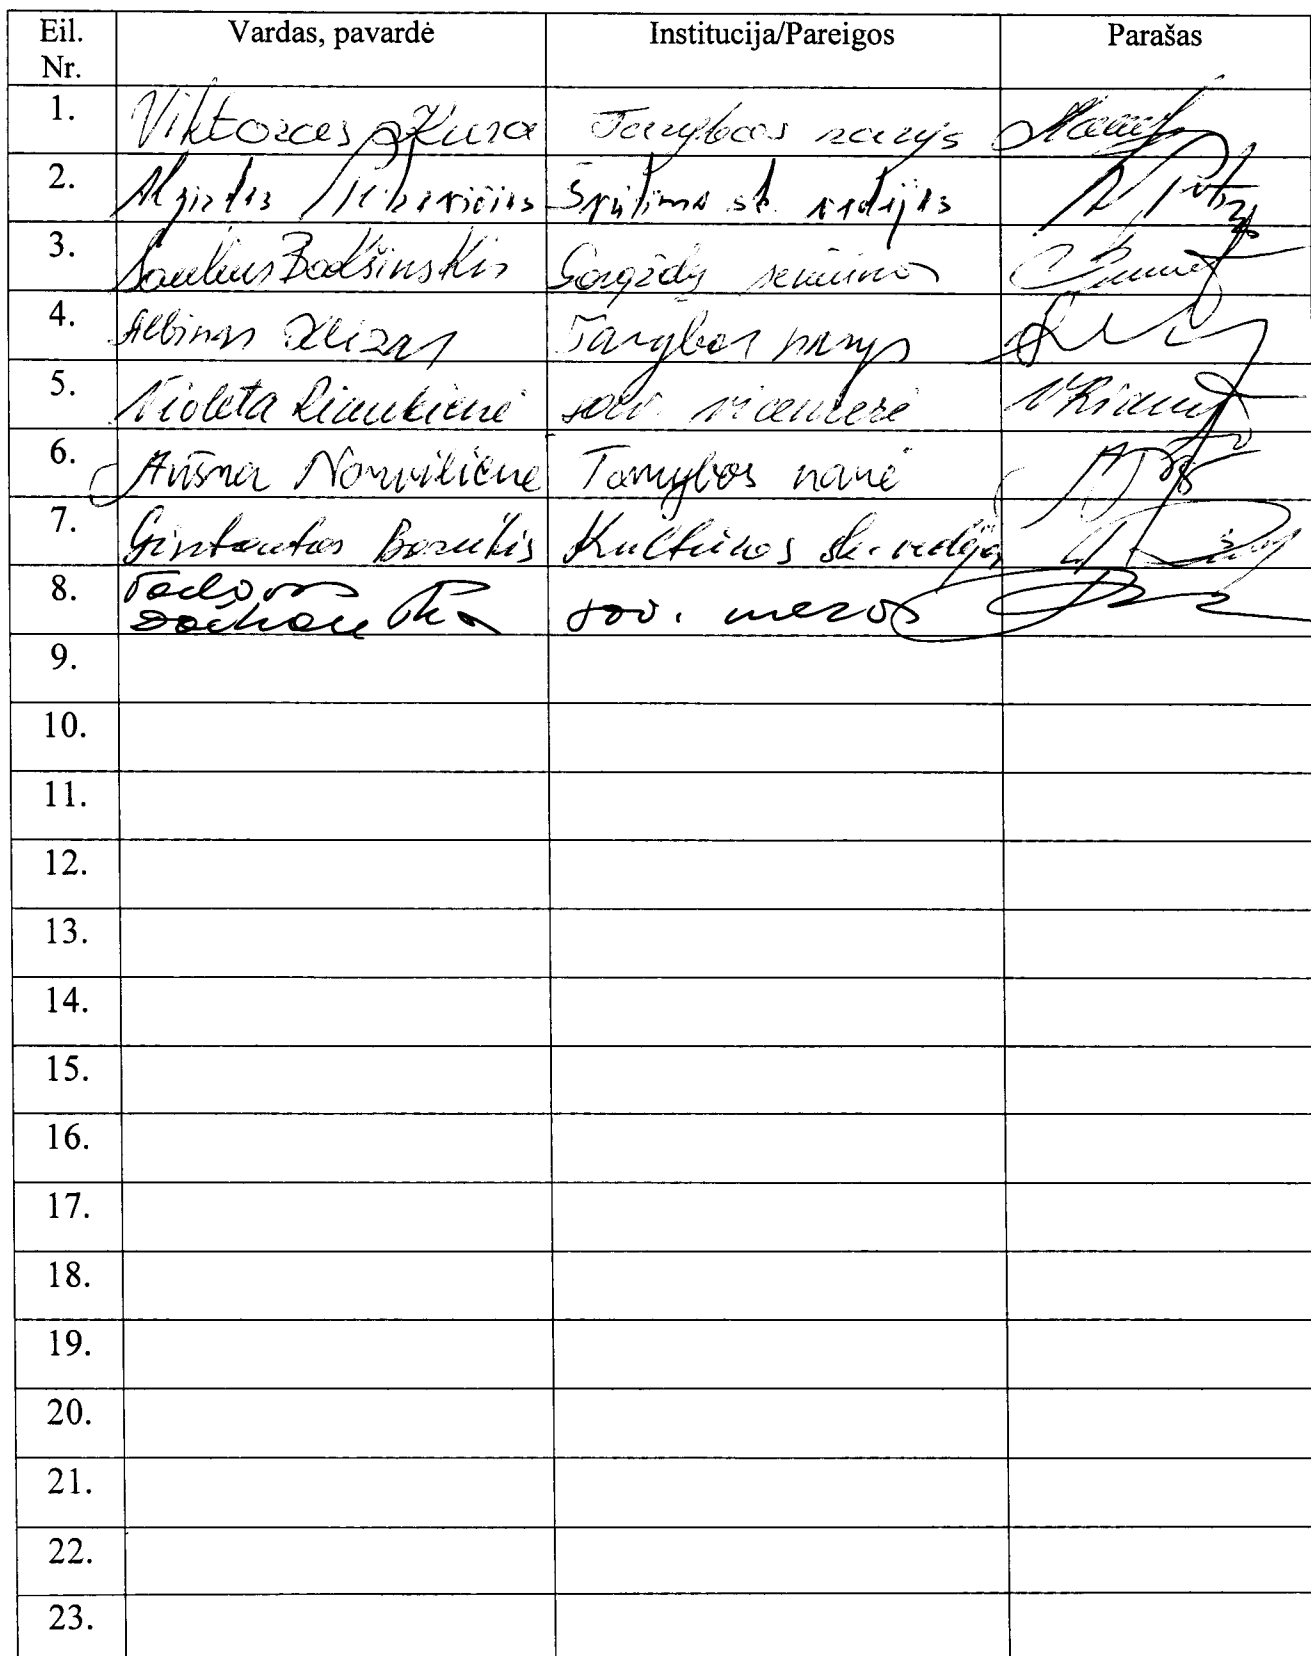 Eil. Nr. Vardas, pavardė Institucija/Pareigos Parašas
1. Viktoras Kura Tarybos narys
2. Algirdas Petravičius Švietimo sk. vedėjas
3. Saulius Bakšinskis Gargždų seniūnas
4. Albinas Klizas Tarybos narys
5. Violeta Riaukienė sav. vicemerė
6. Aušra Norvilienė Tarybos narė
7. Gintautas Bareikis Kultūros sk. vedėjas
8. sav. meras
9.
10.
11.
12.
13.
14.
15.
16.
17.
18.
19.
20.
21.
22.
23.